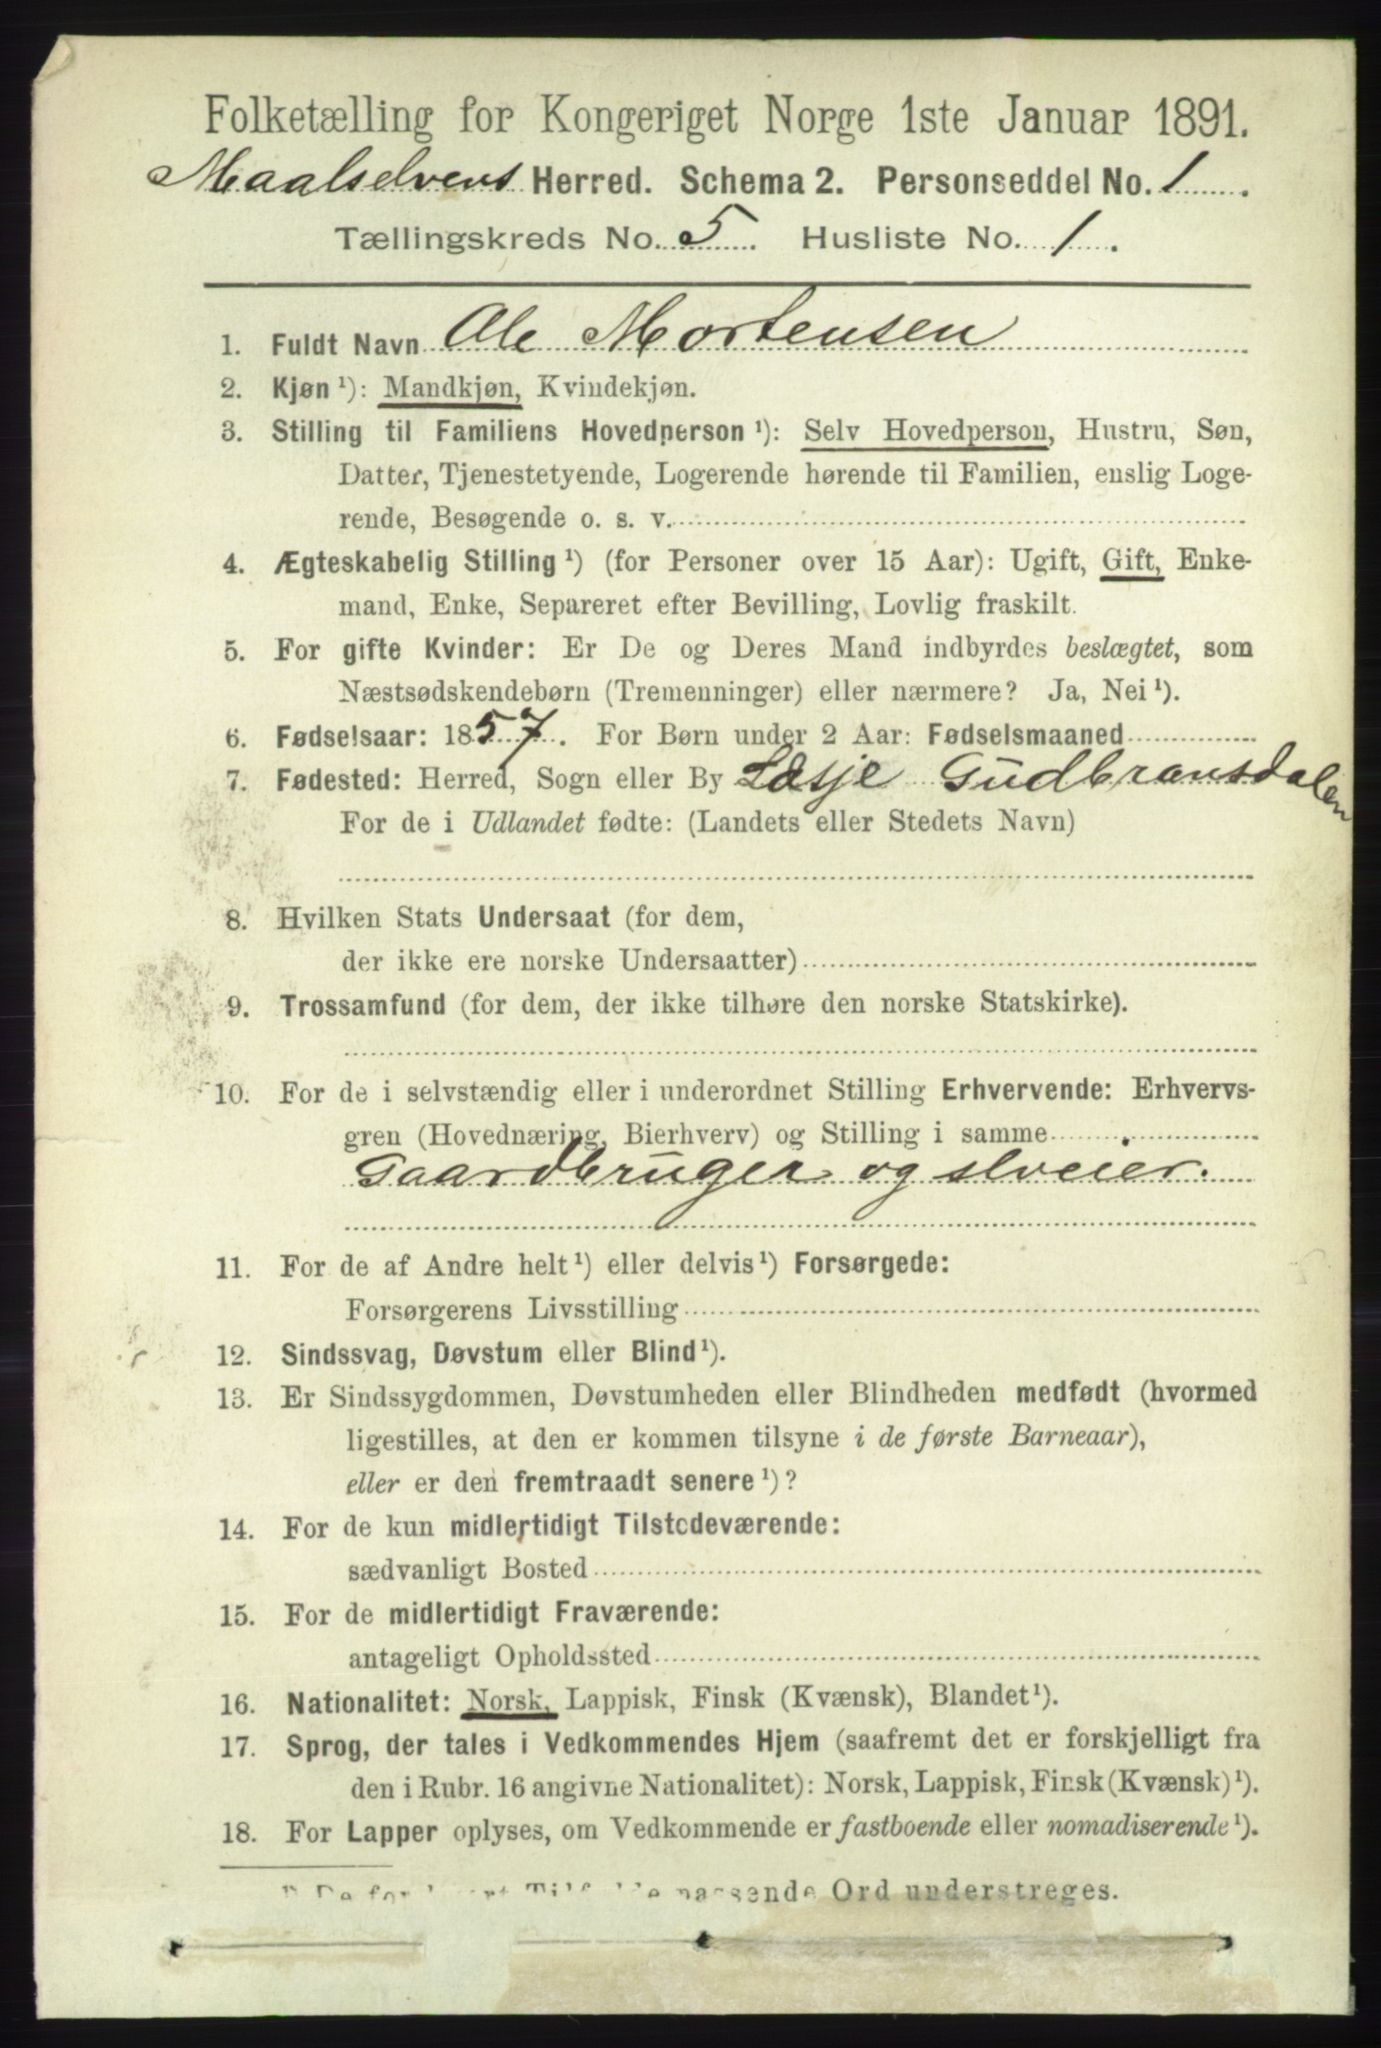 Folketælling for Kongeriget Norge 1ste Januar 1891.
Maalselvens Herred. Schema 2. Personseddel No. 1.
Tællingskreds No. 5. Husliste No. 1.
1. Fuldt Navn Ole Mortensen
2. Kjøn ¹): Mandkjøn, Kvindekjøn.
3. Stilling til Familiens Hovedperson ¹): Selv Hovedperson, Hustru, Søn,
Datter, Tjenestetyende, Logerende hørende til Familien, enslig Loge-
rende, Besøgende o. s. v.
4. Ægteskabelig Stilling ¹) (for Personer over 15 Aar): Ugift, Gift, Enke-
mand, Enke, Separeret efter Bevilling, Lovlig fraskilt.
5. For gifte Kvinder: Er De og Deres Mand indbyrdes beslægtet, som
Næstsødskendebørn (Tremenninger) eller nærmere? Ja, Nei ¹).
6. Fødselsaar: 1857. For Børn under 2 Aar: Fødselsmaaned
7. Fødested: Herred, Sogn eller By Lesje Gudbransdalen
For de i Udlandet fødte: (Landets eller Stedets Navn)
8. Hvilken Stats Undersaat (for dem,
der ikke ere norske Undersaatter)
9. Trossamfund (for dem, der ikke tilhøre den norske Statskirke).
10. For de i selvstændig eller i underordnet Stilling Erhvervende: Erhvervs-
gren (Hovednæring, Bierhverv) og Stilling i samme
Gaardbruger og slveier.
11. For de af Andre helt ¹) eller delvis ¹) Forsørgede:
Forsørgerens Livsstilling
12. Sindssvag, Døvstum eller Blind ¹).
13. Er Sindssygdommen, Døvstumheden eller Blindheden medfødt (hvormed
ligestilles, at den er kommen tilsyne i de første Barneaar),
eller er den fremtraadt senere ¹)?
14. For de kun midlertidigt Tilstedeværende:
sædvanligt Bosted
15. For de midlertidigt Fraværende:
antageligt Opholdssted
16. Nationalitet: Norsk, Lappisk, Finsk (Kvænsk), Blandet ¹).
17. Sprog, der tales i Vedkommendes Hjem (saafremt det er forskjelligt fra
den i Rubr. 16 angivne Nationalitet): Norsk, Lappisk, Finsk (Kvænsk) ¹).
18. For Lapper oplyses, om Vedkommende er fastboende eller nomadiserende ¹).
¹) De for hvert Tilfælde passende Ord understreges.